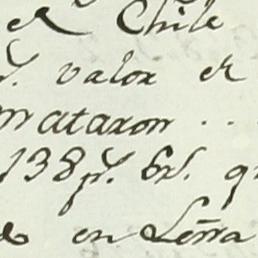 el Chile
valor el
mataron . .
138 p.^s 6 r.^s q
en Leña